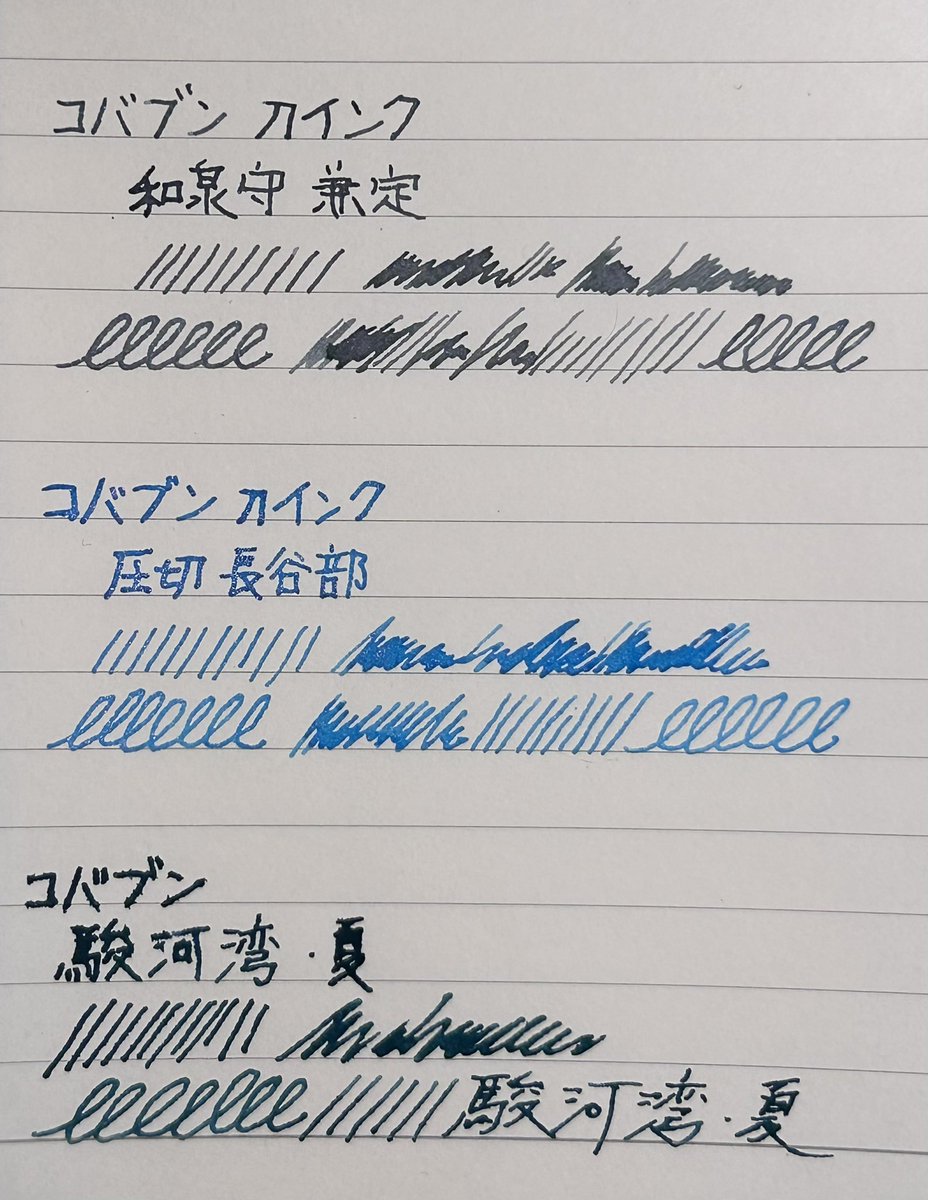 コバブン 刀インク
和泉守 兼定
コバブン 刀インク
圧切 長谷部
コバブン
駿河湾・夏
駿河湾・夏